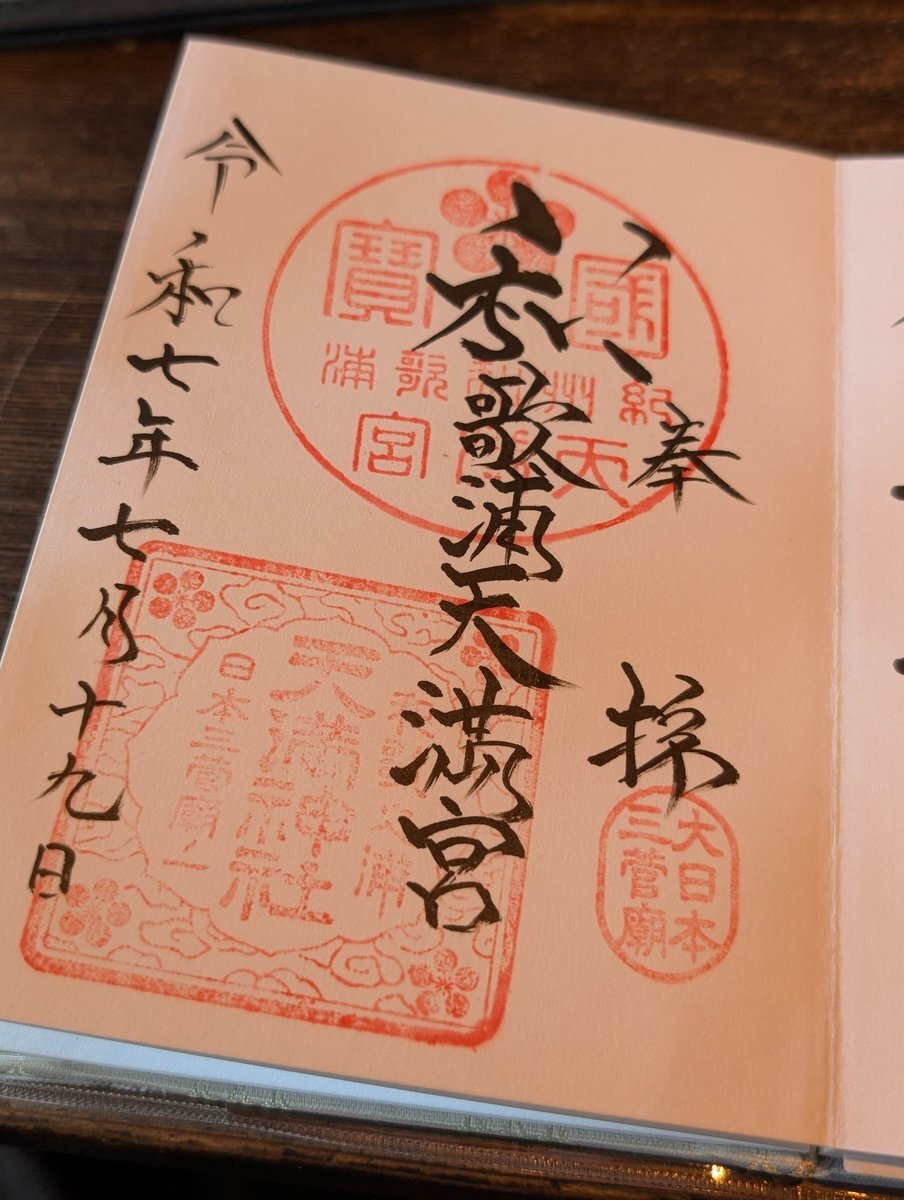 奉拝
大日本
三菅廟
和歌浦天満宮
國寶
紀州和歌浦
天満宮
天満神社
日本三菅廟
令和七年七月十九日